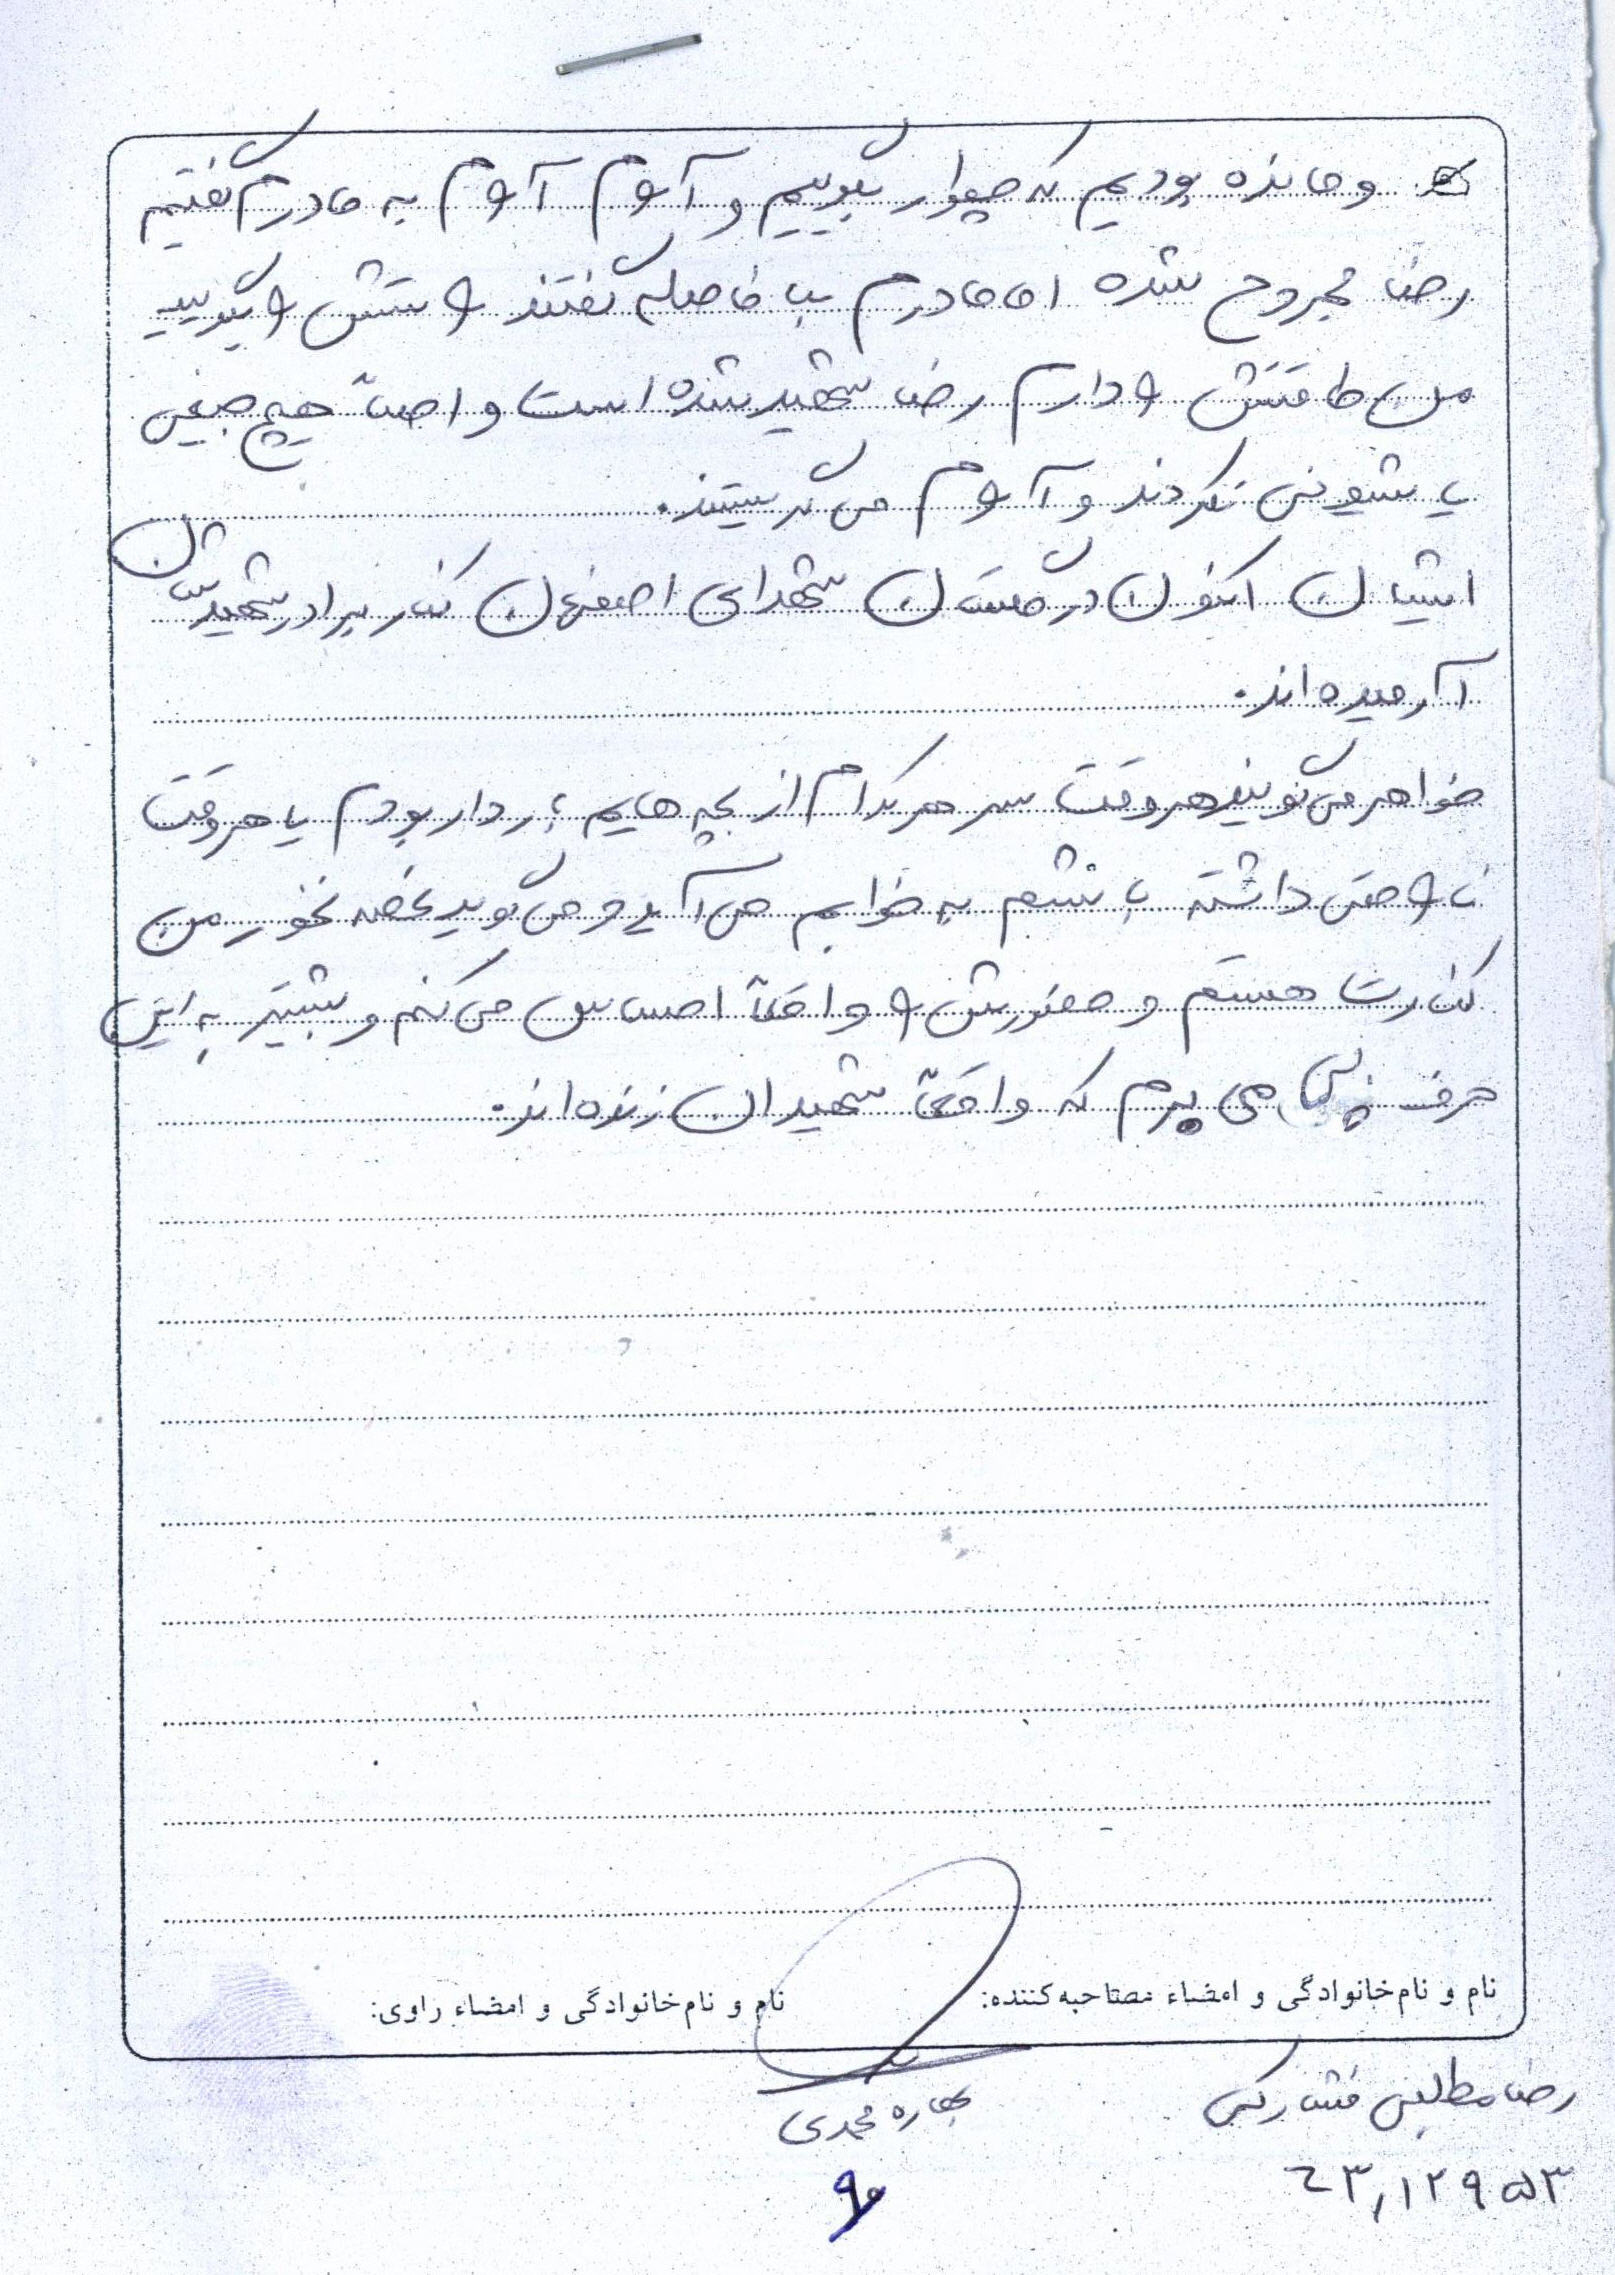 و مانده بودیم که چطور بگوییم و آرام آرام به مادرم گفتیم
رضا مجروح شده اما مادرم بلافاصله گفتند راستش را بگویید
من طاقتش را دارم رضا شهید شده است و اصلاً هیچ جیغی
یا شیونی نکردند و آرام می گریستند.
ایشان اکنون در گلستان شهدای اصفهان کنار برادر شهیدشان
آرمیده اند.
خواهر می گویند هر وقت سر هر کدام از بچه هایم باردار بودم یا هر وقت
ناراحتی داشته باشم به خوابم می آید و می گوید غصه نخور من
کنارت هستم و حضورش را واقعاً احساس می کنم و بیشتر به این
حرف پی می برم که واقعاً شهیدان زنده اند.
نام و نام خانوادگی و امضاء مصاحبه کننده: نام و نام خانوادگی و امضاء راوی:
رضا مطلبی فشارکی
بهاره محمدی
۶۳,۱۲۹۵۳
۹۰